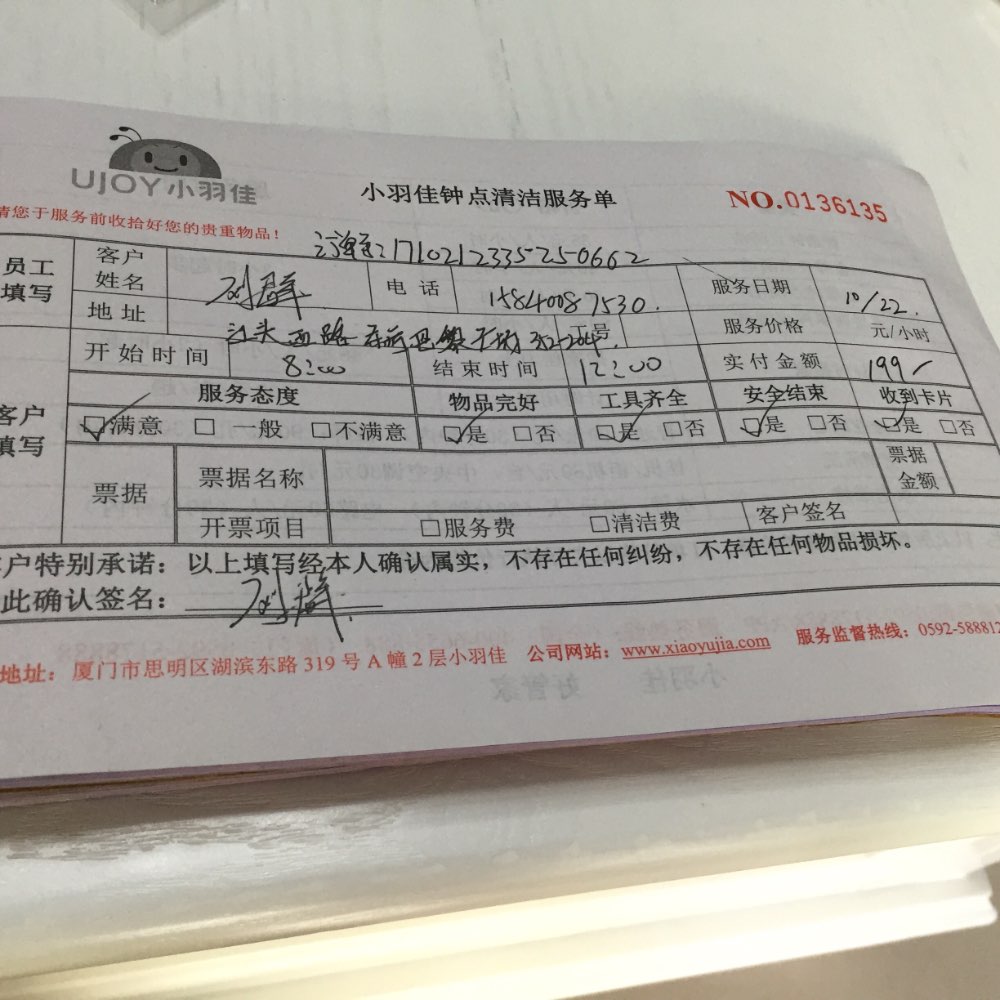 UJOY小羽佳
小羽佳钟点清洁服务单
NO.0136135
请您于服务前收拾好您的贵重物品!
订单号:171021233525250662
员工填写
客户姓名 刘 电话 15840087530. 服务日期 10/22.
地址 江头西路 工号 服务价格 元/小时
开始时间 8:00 结束时间 12:00 实付金额 199
客户填写
服务态度 物品完好 工具齐全 安全结束 收到卡片
☑满意 □一般 □不满意 ☑是 □否 ☑是 □否 ☑是 □否 ☑是 □否
票据 票据名称 票据金额
开票项目 □服务费 □清洁费 客户签名
客户特别承诺:以上填写经本人确认属实,不存在任何纠纷,不存在任何物品损坏。
此确认签名: 刘
地址:厦门市思明区湖滨东路 319 号 A 幢 2 层小羽佳 公司网站:www.xiaoyujia.com 服务监督热线:0592-588812
小羽佳 好管家